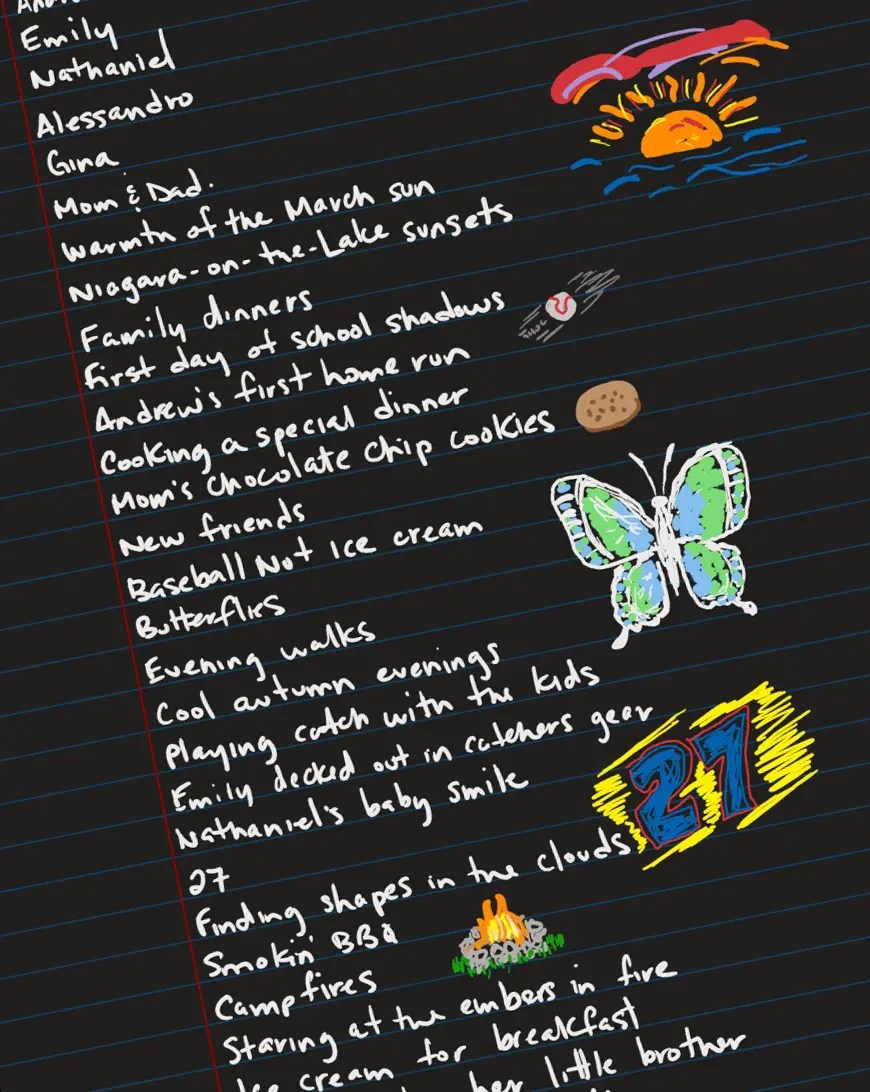 Emily
Nathaniel
Alessandro
Gina
Mom & Dad.
Warmth of the March sun
Niagara-on-the-Lake sunsets
Family dinners
First day of school shadows
Andrew's first home run
Cooking a special dinner
Mom's chocolate chip cookies
New friends
Baseball Not Ice cream
Butterflies
Evening walks
Cool autumn evenings
Playing catch with the kids
Emily decked out in catchers gear
Nathaniel's baby smile
27
27
Finding shapes in the clouds
Smokin' BBQ
Campfires
Staring at the embers in fire
Ice cream for breakfast
her little brother